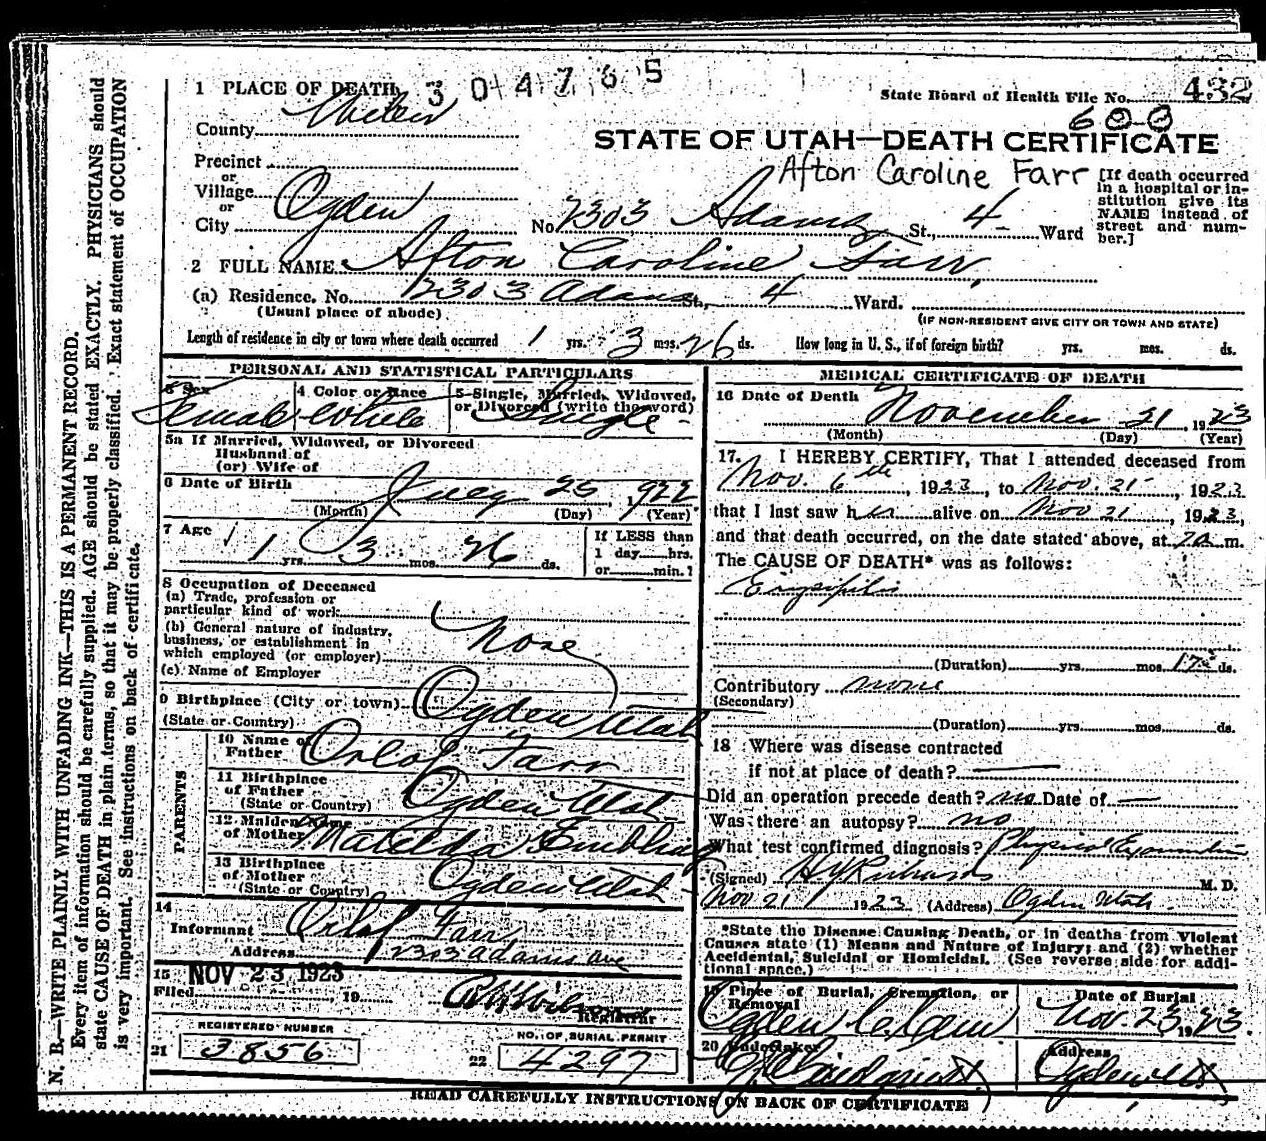 1 PLACE OF DEATH 304765
State Board of Health File No. 432
600
County Weber
STATE OF UTAH—DEATH CERTIFICATE
Afton Caroline Farr
[If death occurred in a hospital or institution give its NAME instead of street and number.]
Precinct
or
Village
or
City Ogden No. 2303 Adams St., 4 Ward
2 FULL NAME Afton Caroline Farr,
(a) Residence. No. 2303 Adams St., 4 Ward.
(Usual place of abode) (IF NON-RESIDENT GIVE CITY OR TOWN AND STATE)
Length of residence in city or town where death occurred 1 yrs. 3 mos. 26 ds. How long in U. S., if of foreign birth? yrs. mos. ds.
PERSONAL AND STATISTICAL PARTICULARS
3 Sex Female
4 Color or Race White
5 Single, Married, Widowed, or Divorced (write the word) Single
5a If Married, Widowed, or Divorced
Husband of
(or) Wife of
6 Date of Birth July 25 1922
(Month) (Day) (Year)
7 Age 1 yrs. 3 mos. 26 ds.
If LESS than
1 day hrs.
or min.?
8 Occupation of Deceased
(a) Trade, profession or
particular kind of work
(b) General nature of industry,
business, or establishment in
which employed (or employer) None
(c) Name of Employer
9 Birthplace (City or town) Ogden Utah
(State or Country)
PARENTS
10 Name of Father Orlof Farr
11 Birthplace of Father Ogden Utah
(State or Country)
12 Maiden Name of Mother Matilda
13 Birthplace of Mother Ogden Utah
(State or Country)
14
Informant Orlof Farr
Address 2303 Adams Ave
15 NOV 23 1923
Filed , 19
Registrar
REGISTERED NUMBER
21 3856
NO. OF BURIAL PERMIT
22 4297
MEDICAL CERTIFICATE OF DEATH
16 Date of Death November 21, 1923
(Month) (Day) (Year)
17. I HEREBY CERTIFY, That I attended deceased from
Nov. 6th, 1923, to Nov. 21, 1923
that I last saw her alive on Nov 21, 1923,
and that death occurred, on the date stated above, at m.
The CAUSE OF DEATH* was as follows:
Erysipelas
(Duration) yrs. mos. ds.
Contributory none
(Secondary)
(Duration) yrs. mos. ds.
18 Where was disease contracted
if not at place of death? —
Did an operation precede death? no Date of —
Was there an autopsy? no
What test confirmed diagnosis? Physical Examination
(Signed) H Y Richards M. D.
Nov 21 1923 (Address) Ogden Utah.
*State the Disease Causing Death, or in deaths from Violent
Causes state (1) Means and Nature of Injury; and (2) whether
Accidental, Suicidal or Homicidal. (See reverse side for addi-
tional space.)
19 Place of Burial, Cremation, or Removal Ogden Cem
Date of Burial Nov. 23, 1923.
20 Undertaker
Address Ogden Ut
READ CAREFULLY INSTRUCTIONS ON BACK OF CERTIFICATE
N. B.—WRITE PLAINLY WITH UNFADING INK—THIS IS A PERMANENT RECORD.
Every item of information should be carefully supplied. AGE should be stated EXACTLY. PHYSICIANS should
state CAUSE OF DEATH in plain terms, so that it may be properly classified. Exact statement of OCCUPATION
is very important. See instructions on back of certificate.